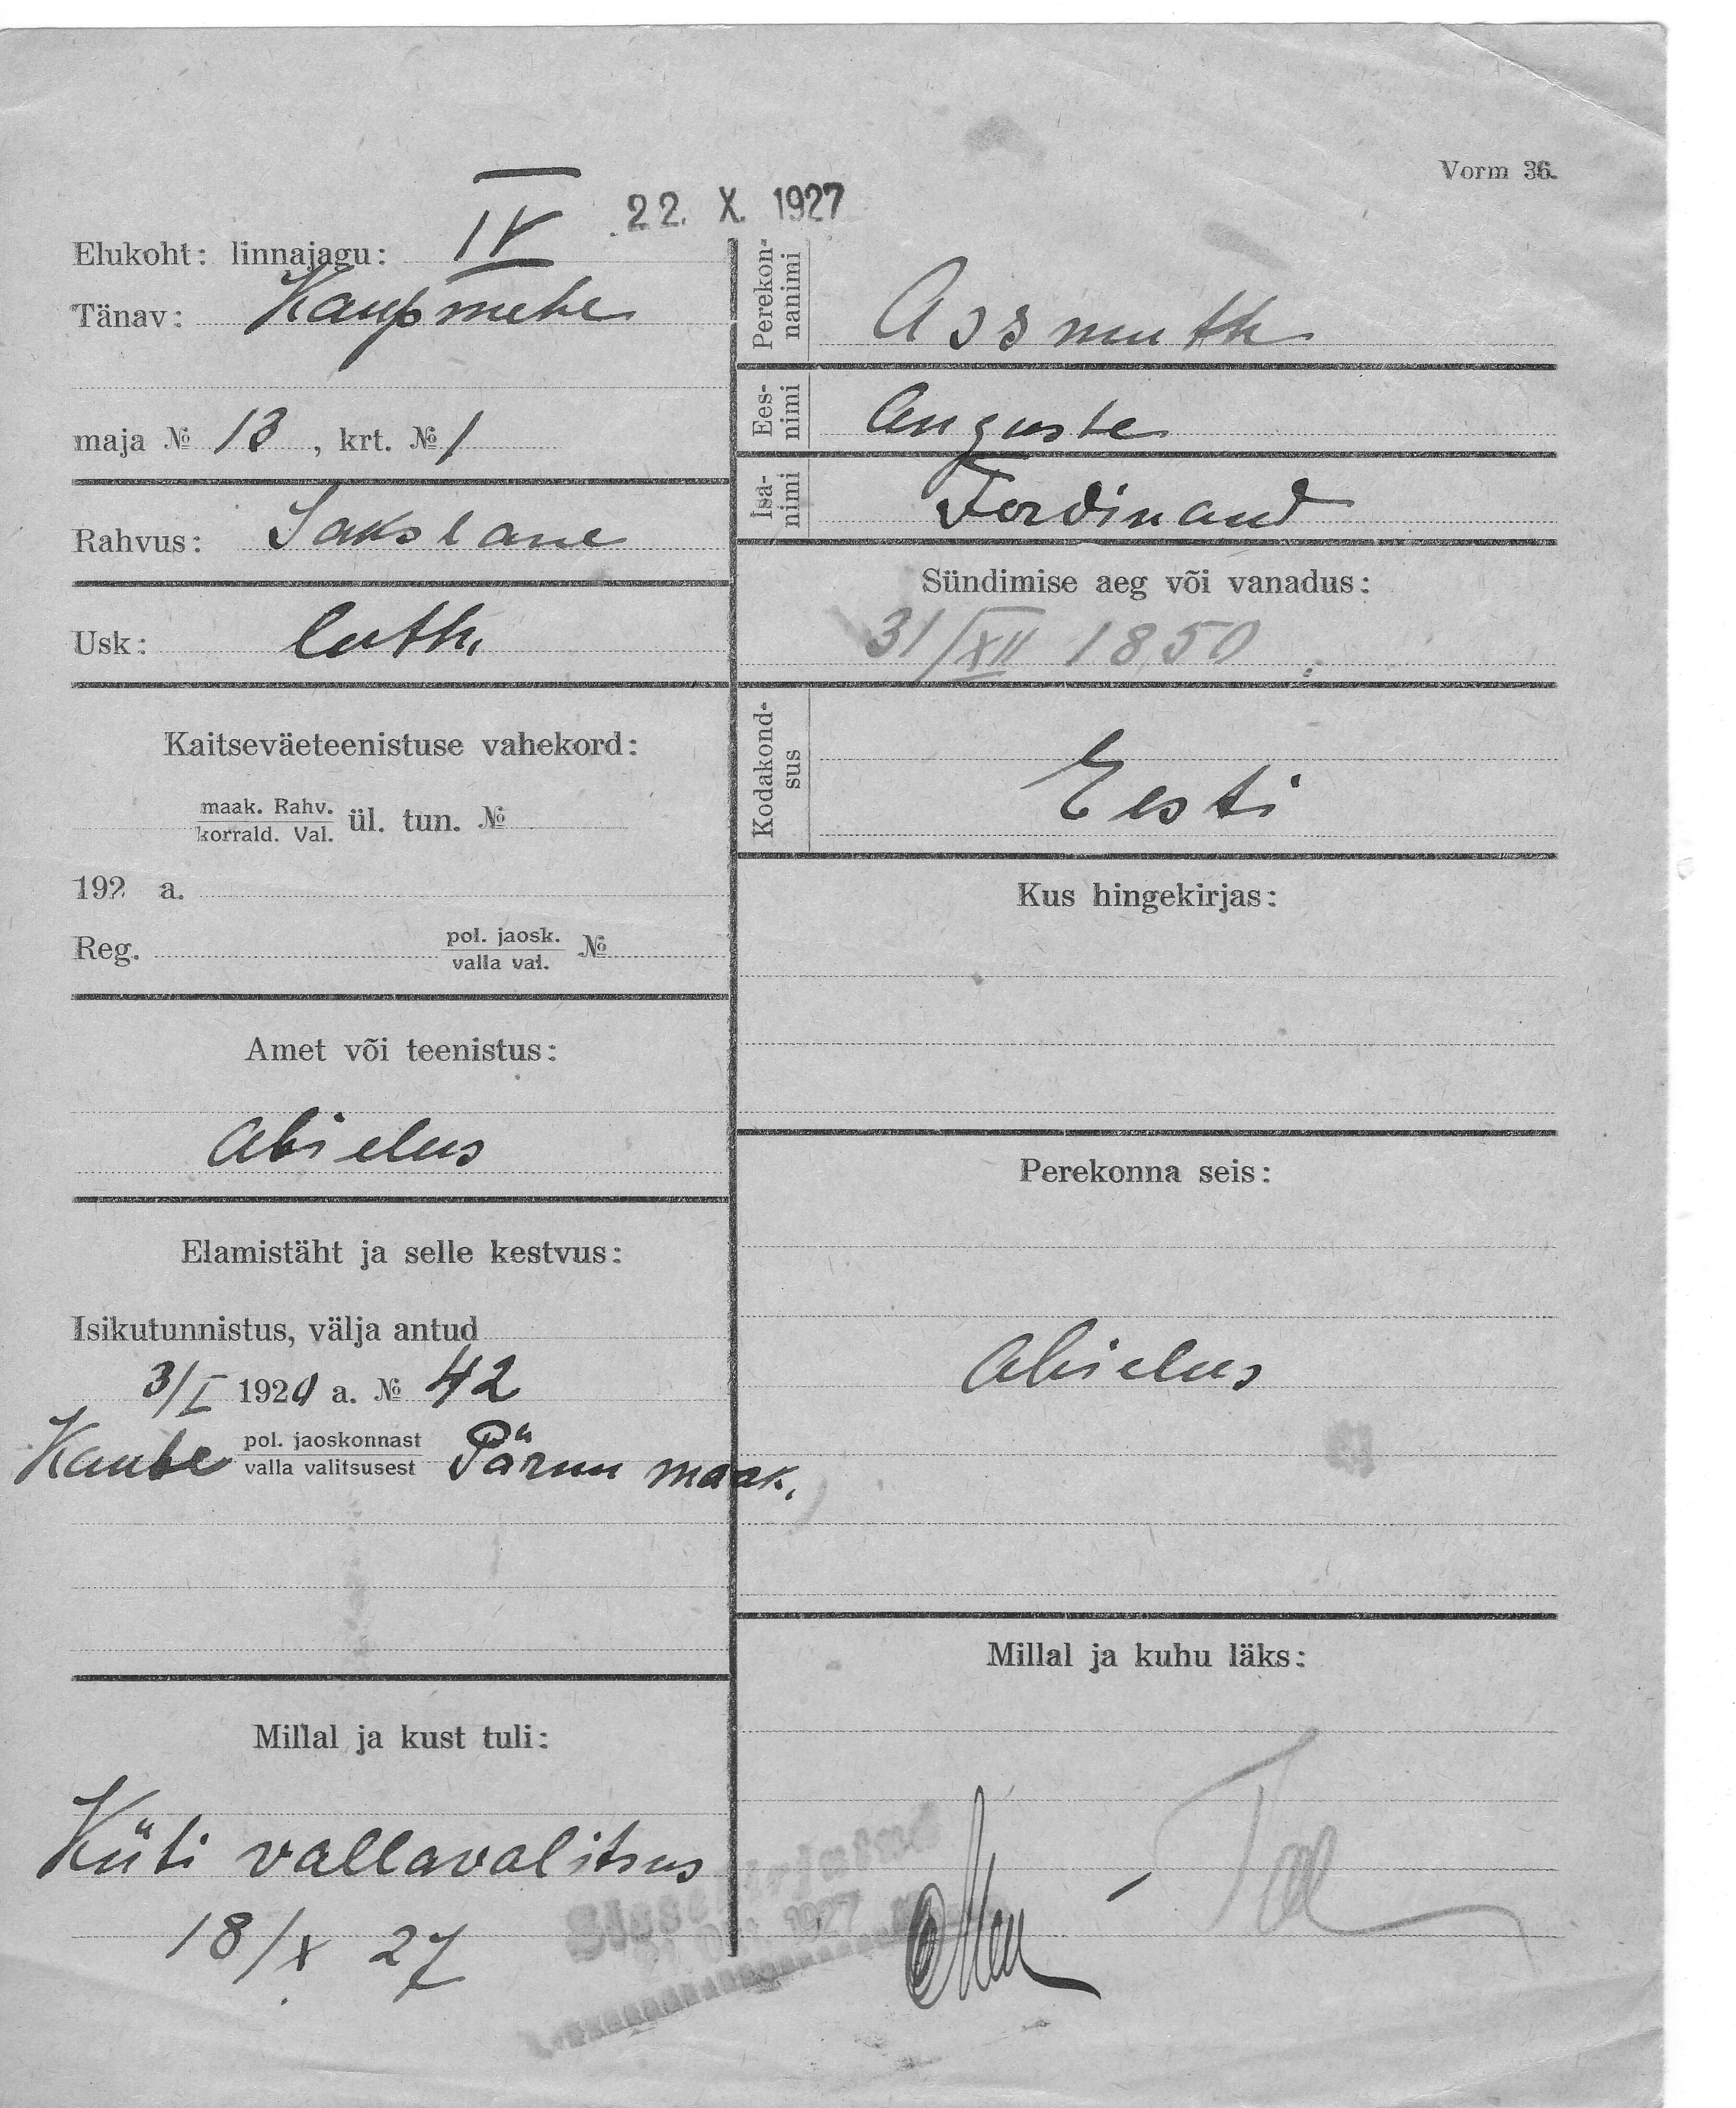 Vorm 36.
22. X. 1927
Elukoht: linnajagu: IV
Tänav: Kaupmehe
maja № 13, krt. № 1
Rahvus: Sakslane
Usk: luth.
Kaitseväeteenistuse vahekord:
maak. Rahv.
korrald. Val. ül. tun. №
192 a.
Reg. pol. jaosk. №
valla val.
Amet või teenistus:
abielus
Elamistäht ja selle kestvus:
Isikutunnistus, välja antud
3/I 1920 a. № 42
pol. jaoskonnast
valla valitsusest Pärnu maak.
Millal ja kust tuli:
Küti vallavalitsus
18/X 27
Perekonnanimi Assmuth
Eesnimi Auguste
Isanimi Ferdinand
Sündimise aeg või vanadus:
31/XII 1850
Kodakondsus
Eesti
Kus hingekirjas:
Perekonna seis:
abielus
Millal ja kuhu läks:
Sissekirjutud
Okt. 1927